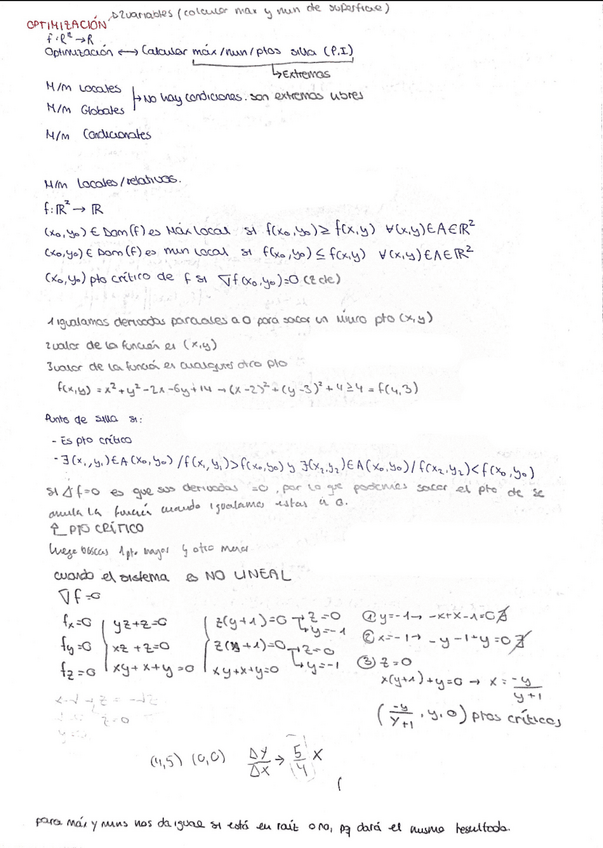 OPTIMIZACIÓN → 2 variables (calcular max y min de superficie)
f: R² → R
Optimización ↔ Calcular máx/min/ptos silla (P.I)
↳ Extremos
M/m Locales
M/m Globales
→ No hay condiciones. son extremos libres
M/m Condicionales
M/m Locales/relativos.
f: ℝ² → ℝ
(x₀,y₀) ∈ Dom(f) es Máx local si f(x₀,y₀) ≥ f(x,y) ∀(x,y) ∈ A ∈ ℝ²
(x₀,y₀) ∈ Dom(f) es min local si f(x₀,y₀) ≤ f(x,y) ∀(x,y) ∈ A ∈ ℝ²
(x₀,y₀) pto crítico de f si ∇f(x₀,y₀)=0
1 igualamos derivadas parciales a 0 para sacar un único pto (x,y)
2 valor de la función es (x,y)
3 valor de la función es cualquier otro pto
f(x,y) = x²+y²-2x-6y+14 → (x-2)²+(y-3)²+4≥4 = f(4,3)
Punto de silla si:
- Es pto crítico
- ∃(x₁,y₁)∈A(x₀,y₀) / f(x₁,y₁)>f(x₀,y₀) y ∃(x₂,y₂)∈A(x₀,y₀) / f(x₂,y₂)<f(x₀,y₀)
si Δf=0 es que sus derivadas =0, por lo que podemos sacar el pto de se
anula la función cuando igualamos estas a 0.
↑ PTO CRÍTICO
luego buscas 1 pto mayor y otro menor
cuando el sistema es NO LINEAL
∇f=0
fx=0 yz+z=0 z(y+1)=0 → z=0 ↳ y=-1 ① y=-1 → -x+x-1=0 ∄
fy=0 xz+z=0 z(x+1)=0 → z=0 ↳ y=-1 ② x=-1 → -y-1+y=0 ∄
fz=0 xy+x+y=0 xy+x+y=0 ③ z=0
x(y+1)+y=0 → x = -y/y+1
(-y/y+1, y, 0) ptos críticos
(4,5) (0,0) Δy/Δx → 5/4 x
para máx y mins nos da igual si está en raíz o no, pq dará el mismo resultado.